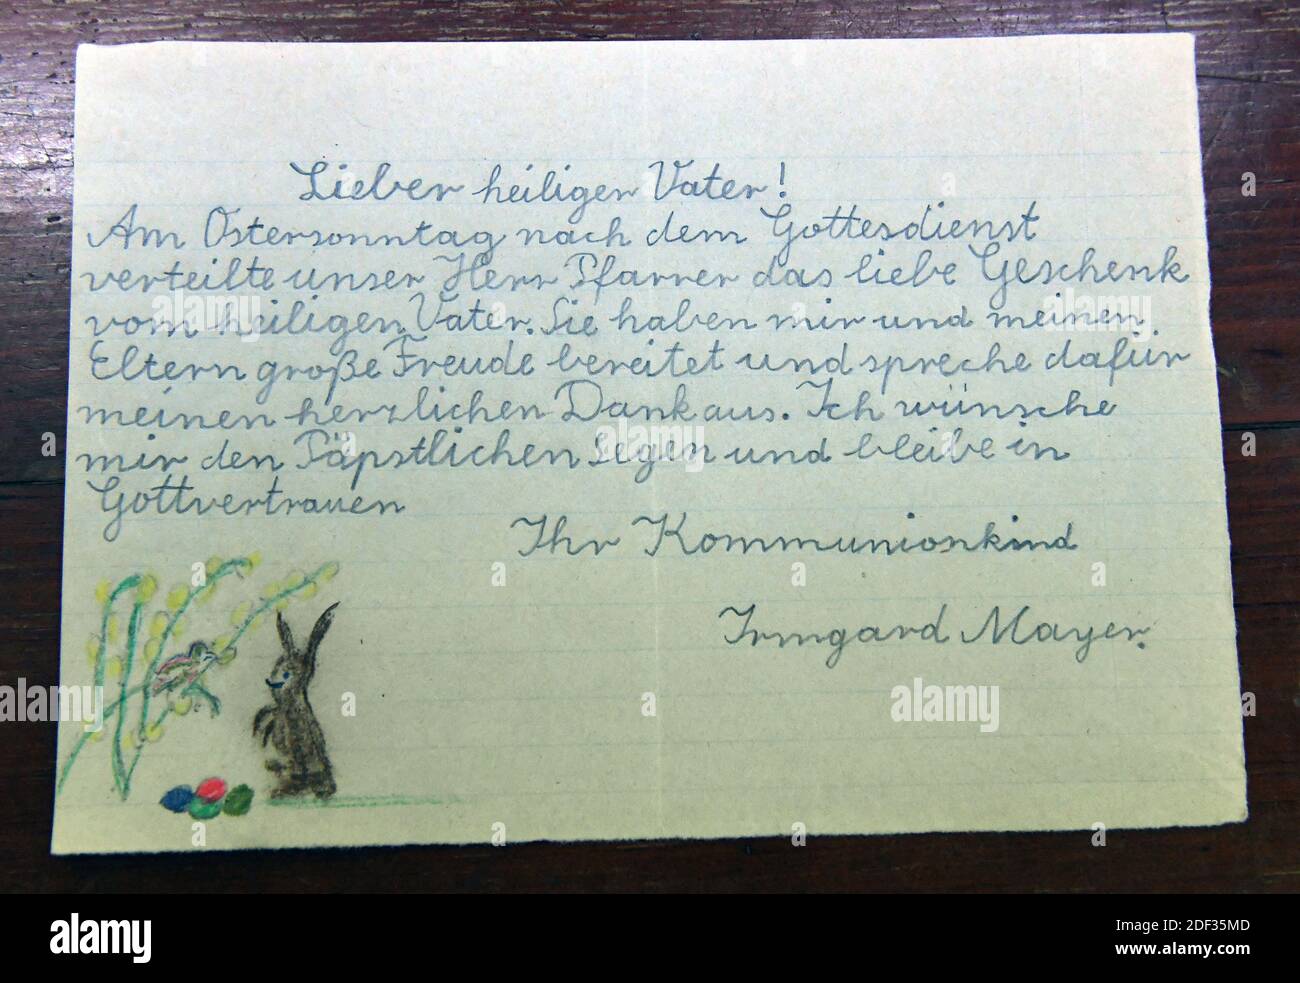 Lieber heiligen Vater!
Am Ostersonntag nach dem Gottesdienst
verteilte unser Herr Pfarrer das liebe Geschenk
vom heiligen Vater. Sie haben mir und meinen
Eltern große Freude bereitet und spreche dafür
meinen herzlichen Dank aus. Ich wünsche
mir den Päpstlichen Segen und bleibe in
Gottvertrauen
Ihr Kommunionkind
Irmgard Mayer.
alamy
alamy
Image ID: 2DF35MD
www.alamy.com